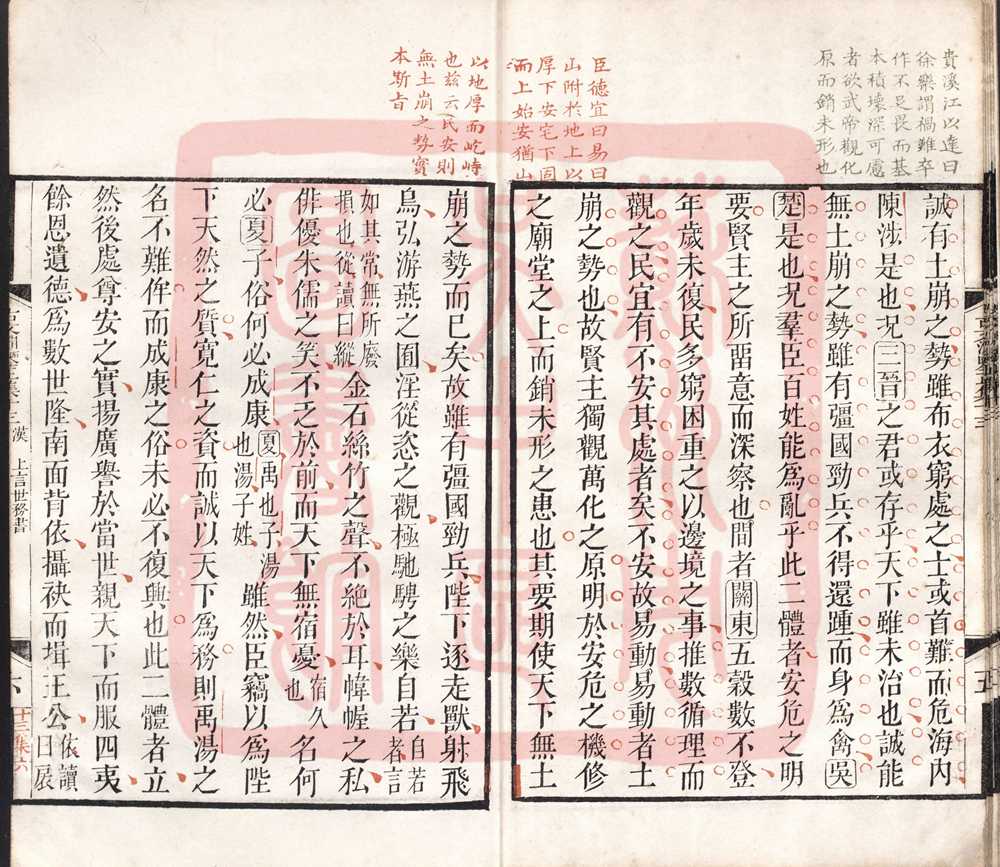 貴溪江以達曰
徐樂謂禍難卒
作不足畏而基
本積壞深可慮
者欲武帝觀化
原而銷未形也
臣德宜曰易曰
山附於地上以
厚下安宅下固
而上始安猶山
以地厚而屹峙
也茲云民安則
無土崩之勢實
本斯旨
誠有土崩之勢雖布衣窮處之士或首難而危海內
陳涉是也況三晉之君或存乎天下雖未治也誠能
無土崩之勢雖有彊國勁兵不得還踵而身為禽吳
楚是也況羣臣百姓能為亂乎此二體者安危之明
要賢主之所畱意而深察也間者關東五穀數不登
年歲未復民多窮困重之以邊境之事推數循理而
觀之民宜有不安其處者矣不安故易動易動者土
崩之勢也故賢主獨觀萬化之原明於安危之機修
之廟堂之上而銷未形之患也其要期使天下無土
崩之勢而已矣故雖有彊國勁兵陛下逐走獸射飛
鳥弘游燕之囿淫從恣之觀極馳騁之樂自若自若者言
如其常無所廢損也從讀曰縱金石絲竹之聲不絕於耳帷幄之私
俳優朱儒之笑不乏於前而天下無宿憂宿久也名何
必夏子俗何必成康夏禹也子湯也湯子姓雖然臣竊以為陛
下天然之質寬仁之資而誠以天下為務則禹湯之
名不難侔而成康之俗未必不復興也此二體者立
然後處尊安之實揚廣譽於當世親天下而服四夷
餘恩遺德為數世隆南面背依攝袂而揖王公依讀曰扆
漢 上言世務書
六
廿三集六